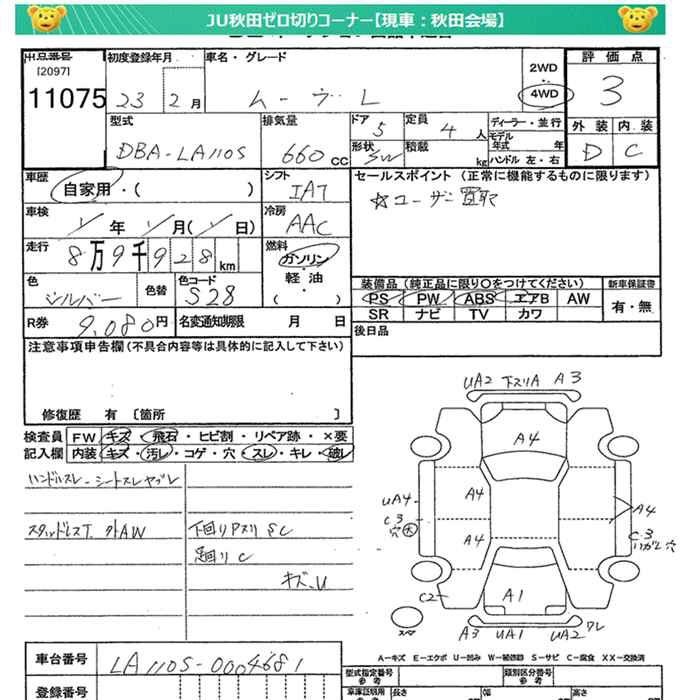 JU秋田ゼロ切りコーナー【現車：秋田会場】
出品番号 初度登録年月 車名・グレード 2WD 評価点
[2097]
11075 23年 2月 ムーヴ L 4WD 3
型式 排気量 ドア 5 定員 4人 ディーラー・並行 外装 内装
DBA-LA110S 660CC 形状 SW 積載 kg モデル年式 年 D C
ハンドル 左・右
車歴 シフト セールスポイント (正常に機能するものに限ります)
自家用・( ) IAT ☆ユーザー買取
車検 年 月( 日) 冷房 AAC
走行 8万9千928km 燃料 ガソリン・軽油・( )
色 シルバー 色替 色コード S28
装備品 (純正品に限り○をつけてください) 新車保証書
PS PW ABS エアB AW 有・無
SR ナビ TV カワ
R券 9,080円 名変通知期限 月 日 後日品
注意事項申告欄(不具合内容等は具体的に記入して下さい)
修復歴 有 [箇所 ]
検査員 FW キズ・飛石・ヒビ割・リペア跡・×要
記入欄 内装 キズ・汚レ・コゲ・穴・スレ・キレ・破レ
ハンドルスレ シートスレヤブレ
スタッドレスT. 外AW 下回りPスリ SC
足回り C
キズ、U
UA2 下スリA A3
A4
UA4 A4 A4
C3 C3
穴大
A4
C2 A1
スペア A3 UA1 UA2 ワレ
A-キズ E-エクボ U-凹み W-補修跡 S-サビ C-腐食 XX-交換済
車台番号 LA110S-0004681
登録番号
型式指定番号 参考 類別区分番号 参考
長さ 幅 高さ